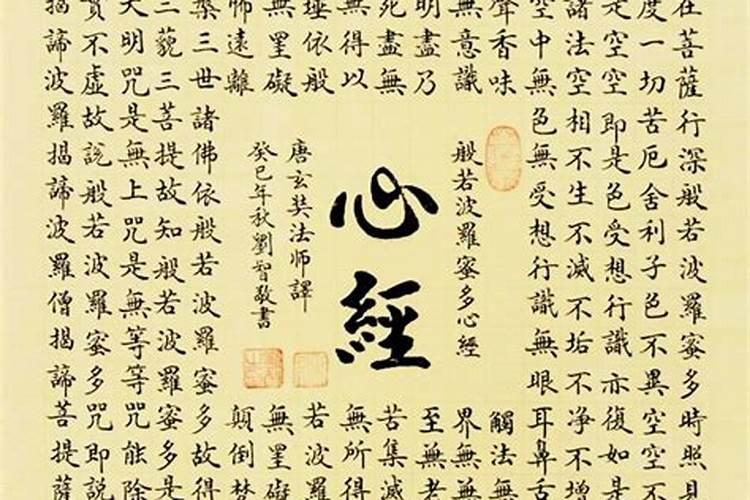 在菩薩行深般若波羅蜜多時照見
度一切苦厄舍利子色不異空空不
是空空即是色受想行識亦復如是
諸法空相不生不滅不垢不淨不增
空中無色無受想行識無眼耳鼻舌
聲香味
觸法無
無意識
界無無
明盡乃
至無老
死盡無
苦集滅
無得以
無所得
埵依般
若波羅
無罣礙
無罣礙
怖遠離
顛倒梦
般若波羅蜜多心經
心經
唐玄奘法師譯
癸巳年秋劉智敬書
槃三世諸佛依般若波羅蜜多故得
三藐三菩提故知般若波羅蜜多是
大明咒是無上咒是無等等咒能除
實不虛故説般若波羅蜜多咒即説
揭諦波羅揭諦波羅僧揭諦菩提薩